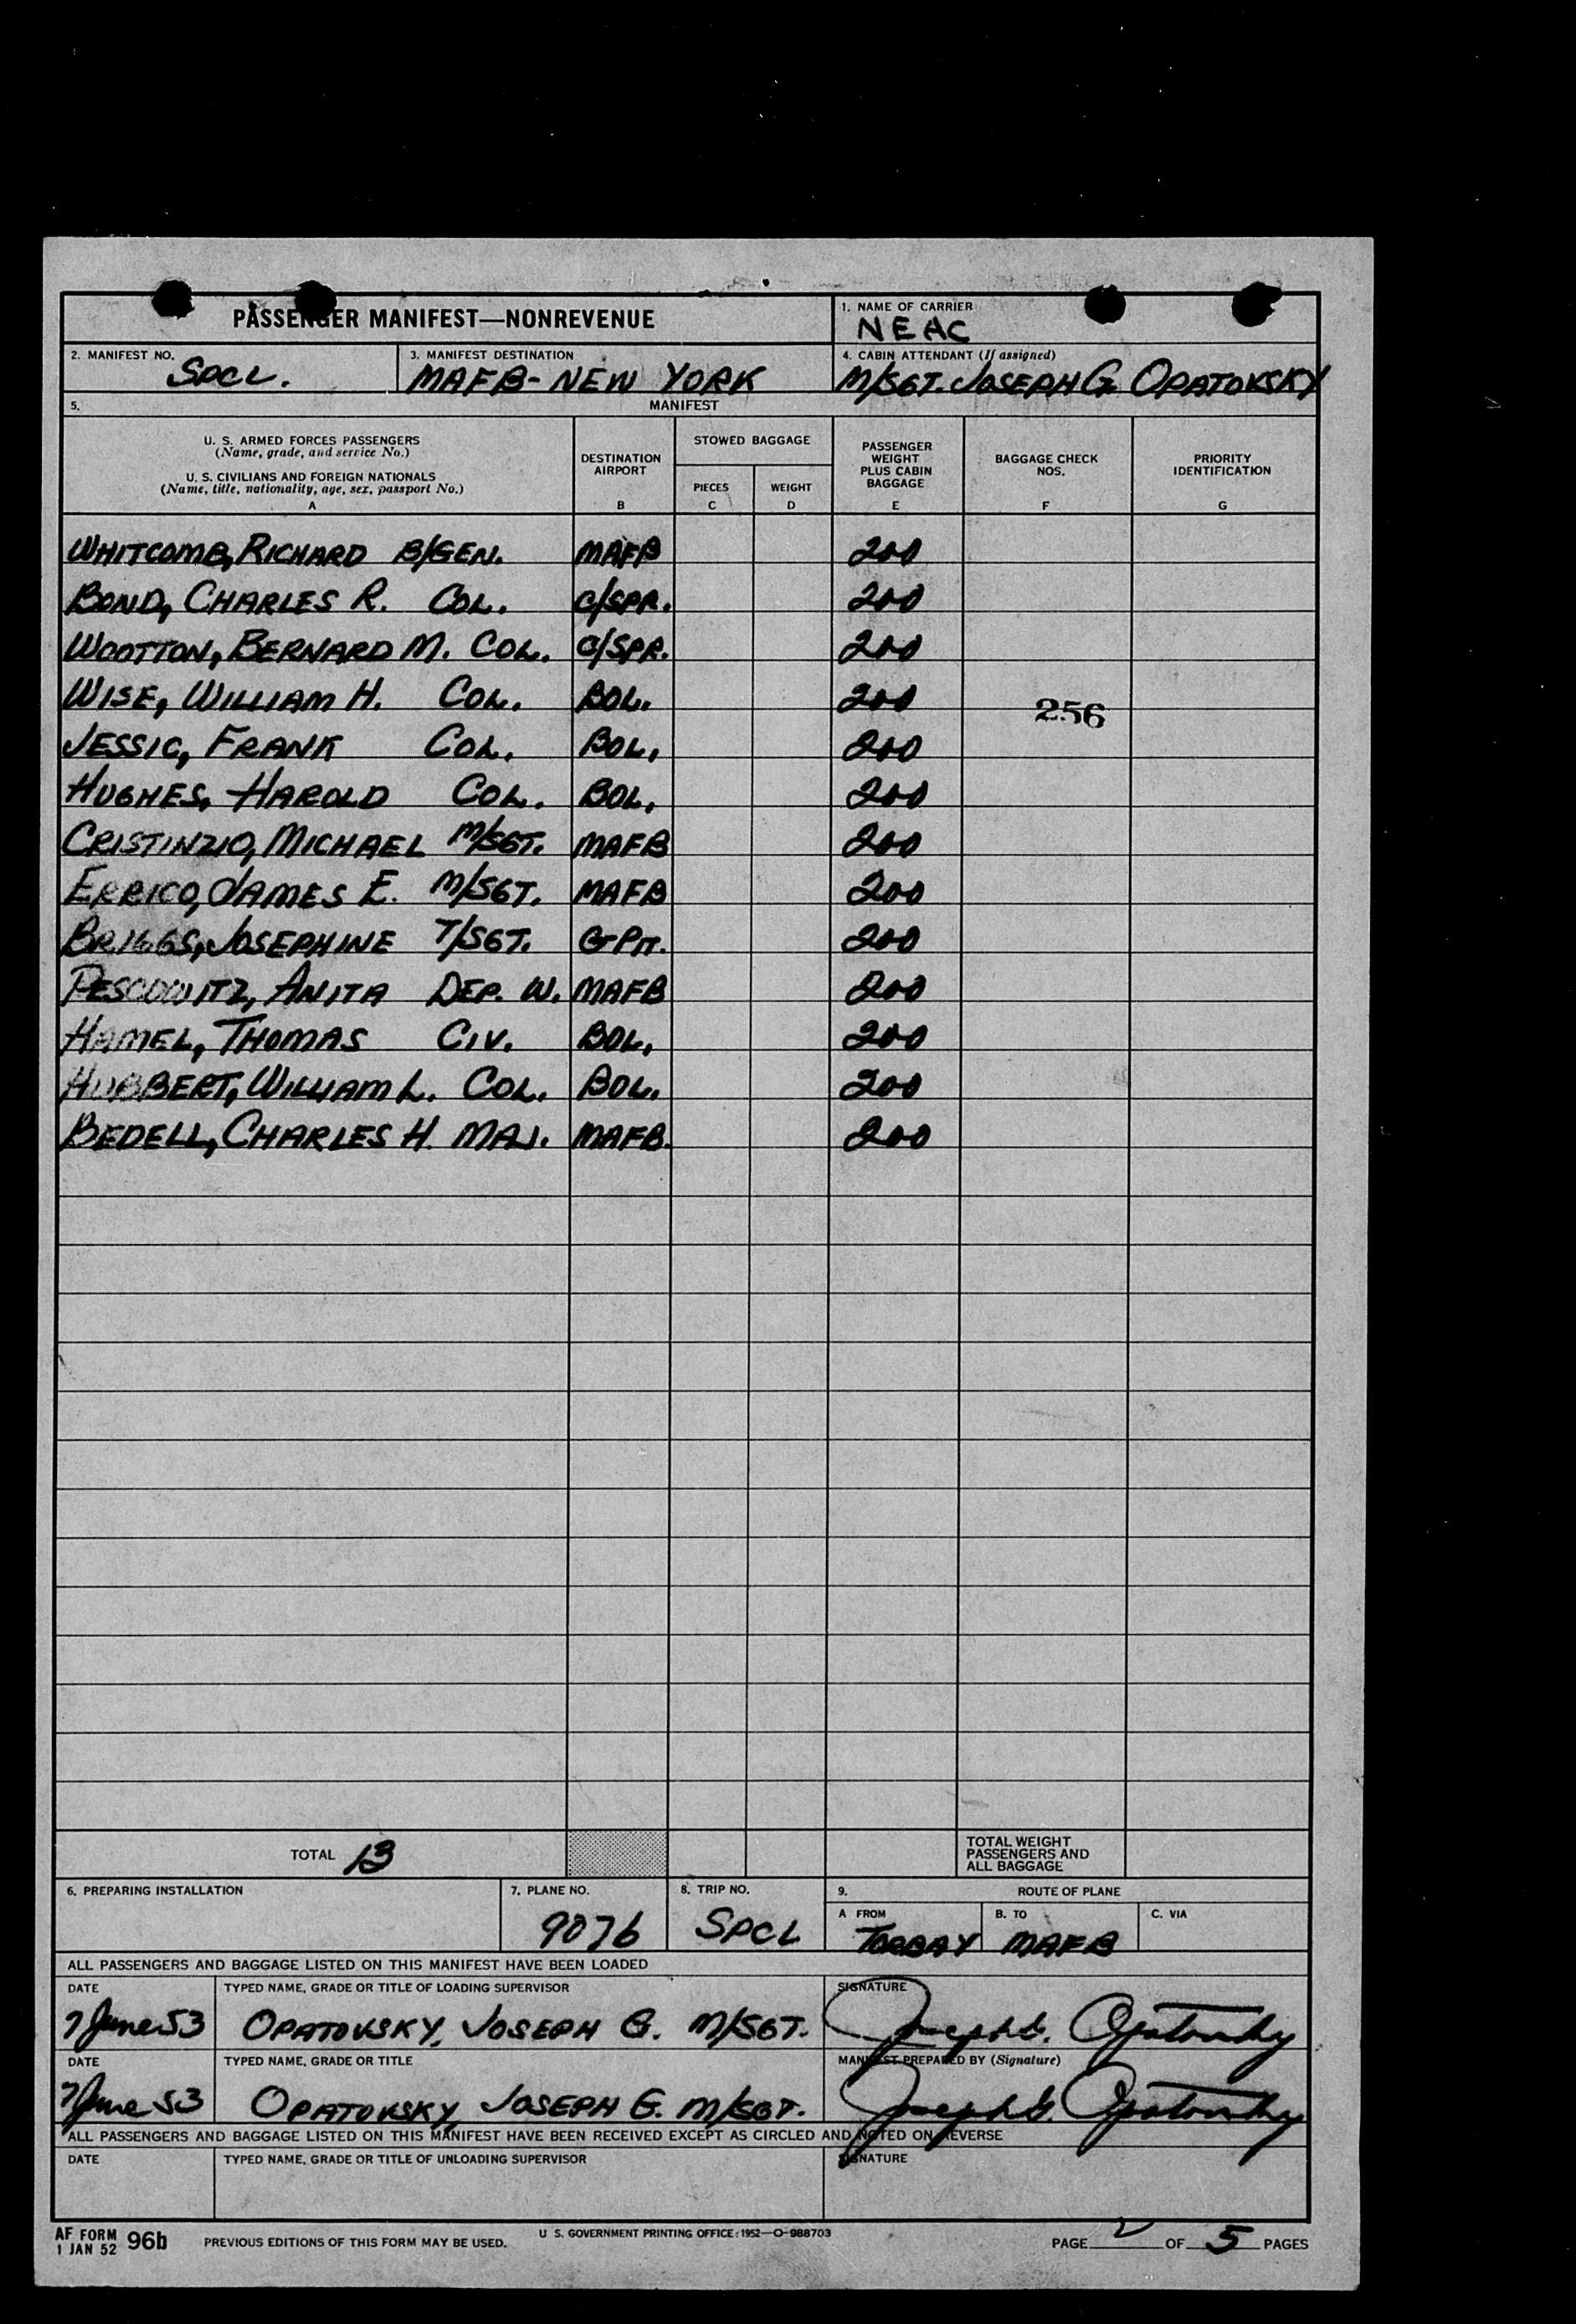 PASSENGER MANIFEST—NONREVENUE
1. NAME OF CARRIER
NEAC
2. MANIFEST NO.
SPCL.
3. MANIFEST DESTINATION
MAFB-NEW YORK
4. CABIN ATTENDANT (If assigned)
M/SGT. JOSEPH G OPATOVSKY
5. MANIFEST
U. S. ARMED FORCES PASSENGERS
(Name, grade, and service No.)
U. S. CIVILIANS AND FOREIGN NATIONALS
(Name, title, nationality, age, sex, passport No.)
A
DESTINATION
AIRPORT
B
STOWED BAGGAGE
PIECES
C
WEIGHT
D
PASSENGER
WEIGHT
PLUS CABIN
BAGGAGE
E
BAGGAGE CHECK
NOS.
F
PRIORITY
IDENTIFICATION
G
WHITCOMB, RICHARD B/GEN. MAFB 200
BOND, CHARLES R. COL. C/SPR. 200
WOOTTON, BERNARD M. COL. C/SPR. 200
WISE, WILLIAM H. COL. BOL. 200
256
JESSIC, FRANK COL. BOL. 200
HUGHES, HAROLD COL. BOL. 200
CRISTINZIO, MICHAEL M/SGT. MAFB 200
ERRICO, JAMES E. M/SGT. MAFB 200
BRIGGS, JOSEPHINE T/SGT. 200
PESCOWITZ, ANITA DEP. W. MAFB 200
HAMEL, THOMAS CIV. BOL. 200
HUBBERT, WILLIAM L. COL. BOL. 200
BEDELL, CHARLES H. MAJ. MAFB. 200
TOTAL 13
TOTAL WEIGHT
PASSENGERS AND
ALL BAGGAGE
6. PREPARING INSTALLATION
7. PLANE NO.
9076
8. TRIP NO.
SPCL
9. ROUTE OF PLANE
A FROM
TORBAY
B. TO
MAFB
C. VIA
ALL PASSENGERS AND BAGGAGE LISTED ON THIS MANIFEST HAVE BEEN LOADED
DATE
7 June 53
TYPED NAME, GRADE OR TITLE OF LOADING SUPERVISOR
OPATOVSKY, JOSEPH G. M/SGT.
SIGNATURE
Joseph G. Opatovsky
DATE
7 June 53
TYPED NAME, GRADE OR TITLE
OPATOVSKY, JOSEPH G. M/SGT.
MANIFEST PREPARED BY (Signature)
Joseph G. Opatovsky
ALL PASSENGERS AND BAGGAGE LISTED ON THIS MANIFEST HAVE BEEN RECEIVED EXCEPT AS CIRCLED AND NOTED ON REVERSE
DATE
TYPED NAME, GRADE OR TITLE OF UNLOADING SUPERVISOR
SIGNATURE
AF FORM 96b
1 JAN 52
PREVIOUS EDITIONS OF THIS FORM MAY BE USED.
U S. GOVERNMENT PRINTING OFFICE: 1952—O-988703
PAGE 2 OF 5 PAGES